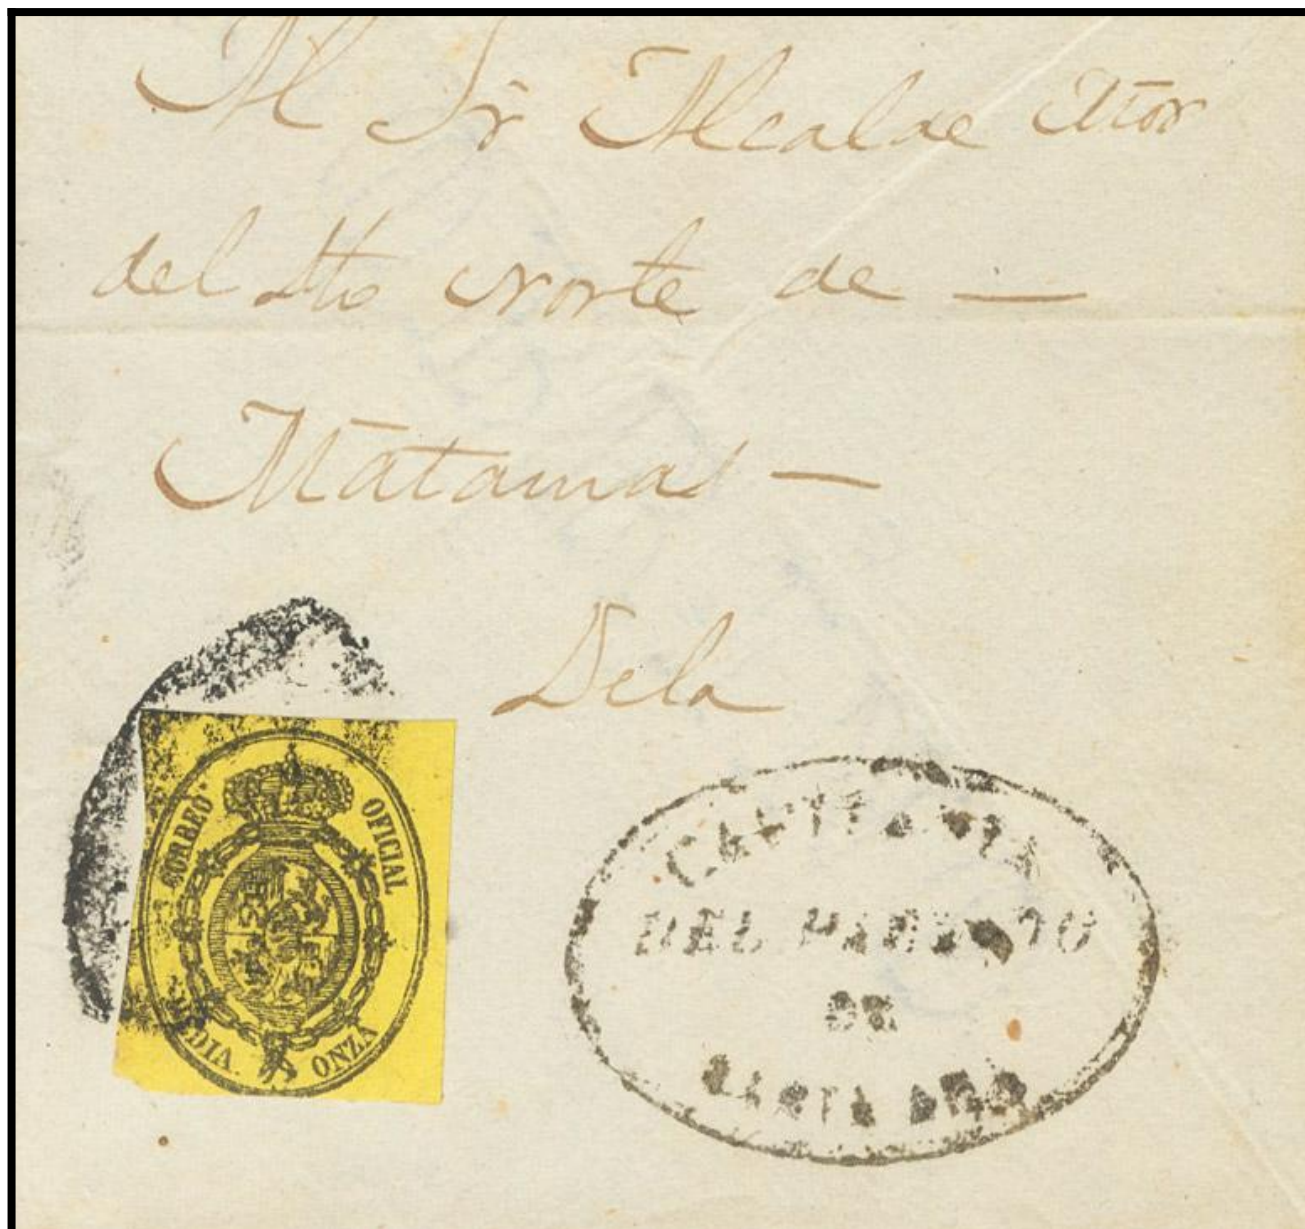 Al Sr Alcalde Mor
del Dto Norte de —
Matanzas —
Dela
CORREO OFICIAL
MEDIA ONZA
CAPITANIA
DEL PARTIDO
DE
SANTA ANA